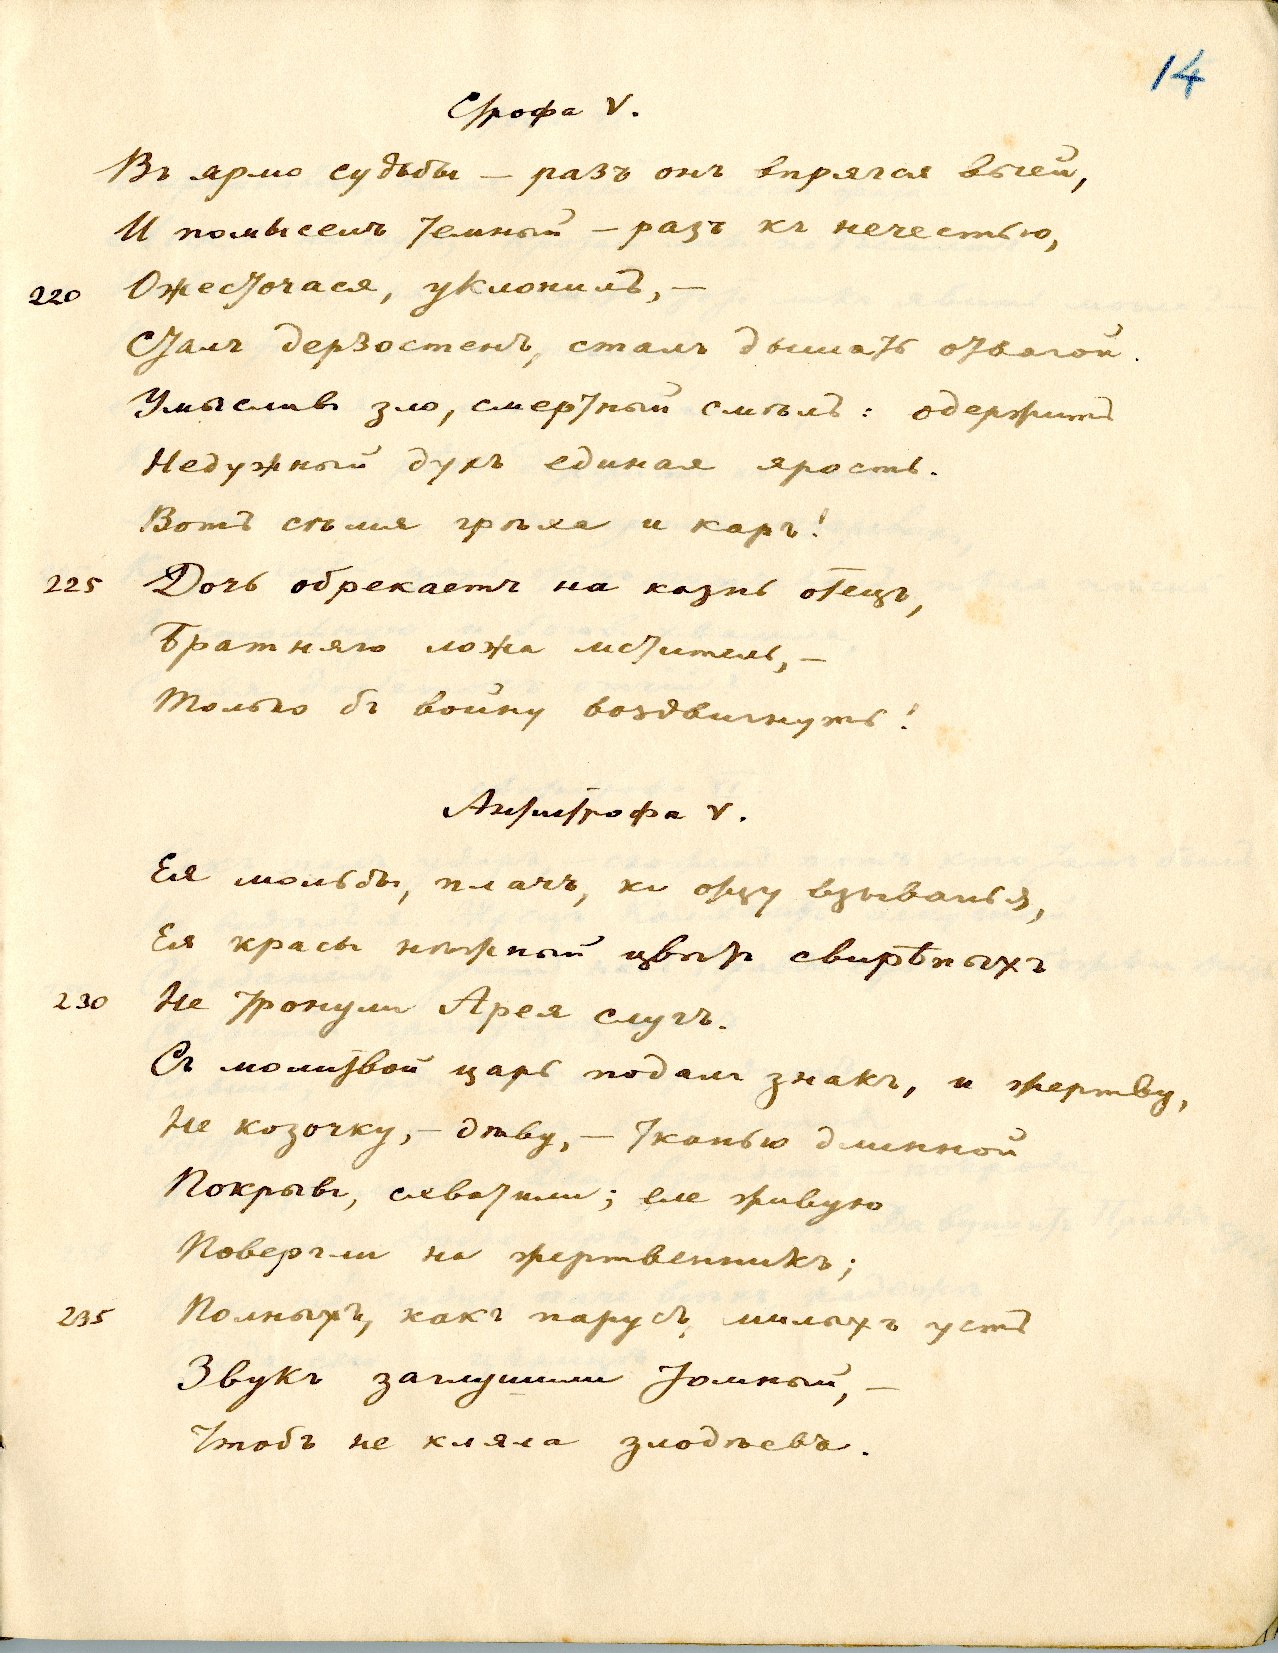 14
Строфа V.
Въ ярмо судьбы – разъ онъ впрягся выей,
И помыселъ темный – разъ къ нечестью,
220 Ожесточася, уклонилъ, –
Сталъ дерзостенъ, сталъ дышать отвагой.
Умысливъ зло, смертный смѣлъ: одержитъ
Недужный духъ единая ярость.
Вотъ сѣмя грѣха и каръ!
225 Дочь обрекаетъ на казнь отецъ,
Братняго ложа мститель, –
Только бъ войну воздвигнуть!
Антистрофа V.
Ея мольбы, плачъ, къ отцу взыванья,
Ея красы нѣжный цвѣтъ свирѣпыхъ
230 Не тронули Арея слугъ.
Съ молитвой царь подалъ знакъ, и жертву,
Не козочку, – дѣву, – тканью длинной
Покрывъ, схватили; еле живую
Повергли на жертвенникъ;
235 Полныхъ, какъ парусъ, милыхъ устъ
Звукъ заглушили томный, –
Чтобъ не кляла злодѣевъ.